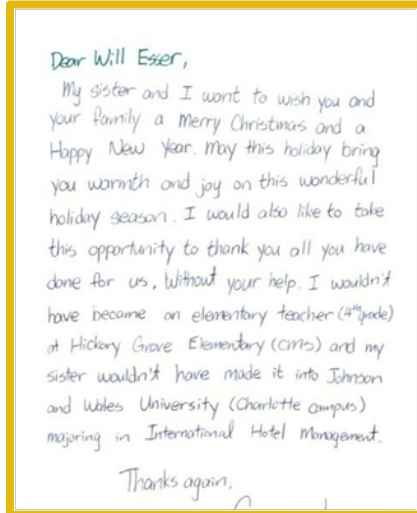 Dear Will Esser,
My sister and I want to wish you and
your family a Merry Christmas and a
Happy New Year. May this holiday bring
you warmth and joy on this wonderful
holiday season. I would also like to take
this opportunity to thank you all you have
done for us. Without your help. I wouldn't
have became an elementary teacher (4th grade)
at Hickory Grove Elementary (CMS) and my
sister wouldn't have made it into Johnson
and Wales University (Charlotte campus)
majoring in International Hotel Management.
Thanks again,